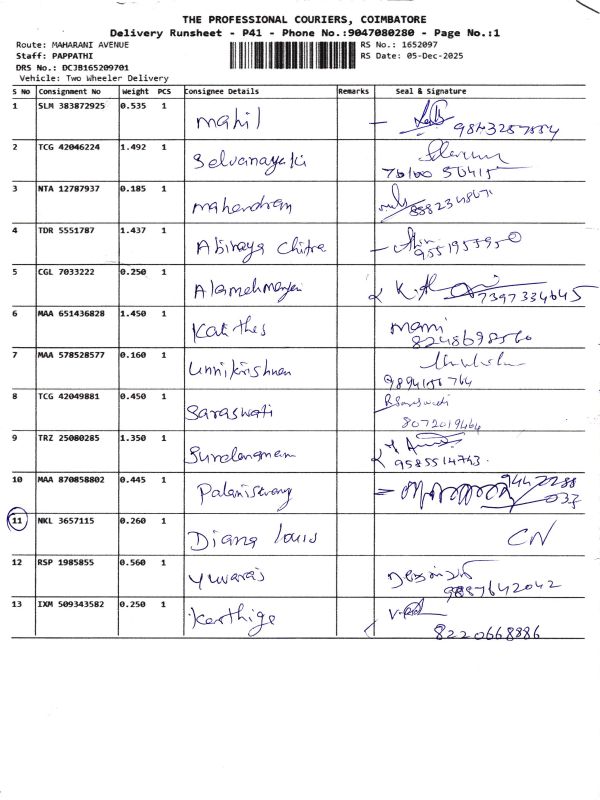 THE PROFESSIONAL COURIERS, COIMBATORE
Delivery Runsheet - P41 - Phone No.:9047080280 - Page No.:1
Route: MAHARANI AVENUE
Staff: PAPPATHI
DRS No.: DCJB165209701
Vehicle: Two Wheeler Delivery
RS No.: 1652097
RS Date: 05-Dec-2025
S No Consignment No Weight PCS Consignee Details Remarks Seal & Signature
1 SLM 383872925 0.535 1 Mahil
2 TCG 42046224 1.492 1 Selvanayaki
3 NTA 12787937 0.185 1 Mahendran
4 TDR 5551787 1.437 1 Abinaya Chitra
5 CGL 7033222 0.250 1 7397334645
6 MAA 651436828 1.450 1 Mani
8248698560
7 MAA 578528577 0.160 1 Unnikrishnan
9894156764
8 TCG 42049881 0.450 1 Saraswati B.Saraswati
8072019464
9 TRZ 25080285 1.350 1
9585514743
10 MAA 870858802 0.445 1 9442288
033
11 NKL 3657115 0.260 1 Diana Louis CN
12 RSP 1985855 0.560 1 Yuvaraj
13 IXM 509343582 0.250 1 Karthige
8220668886